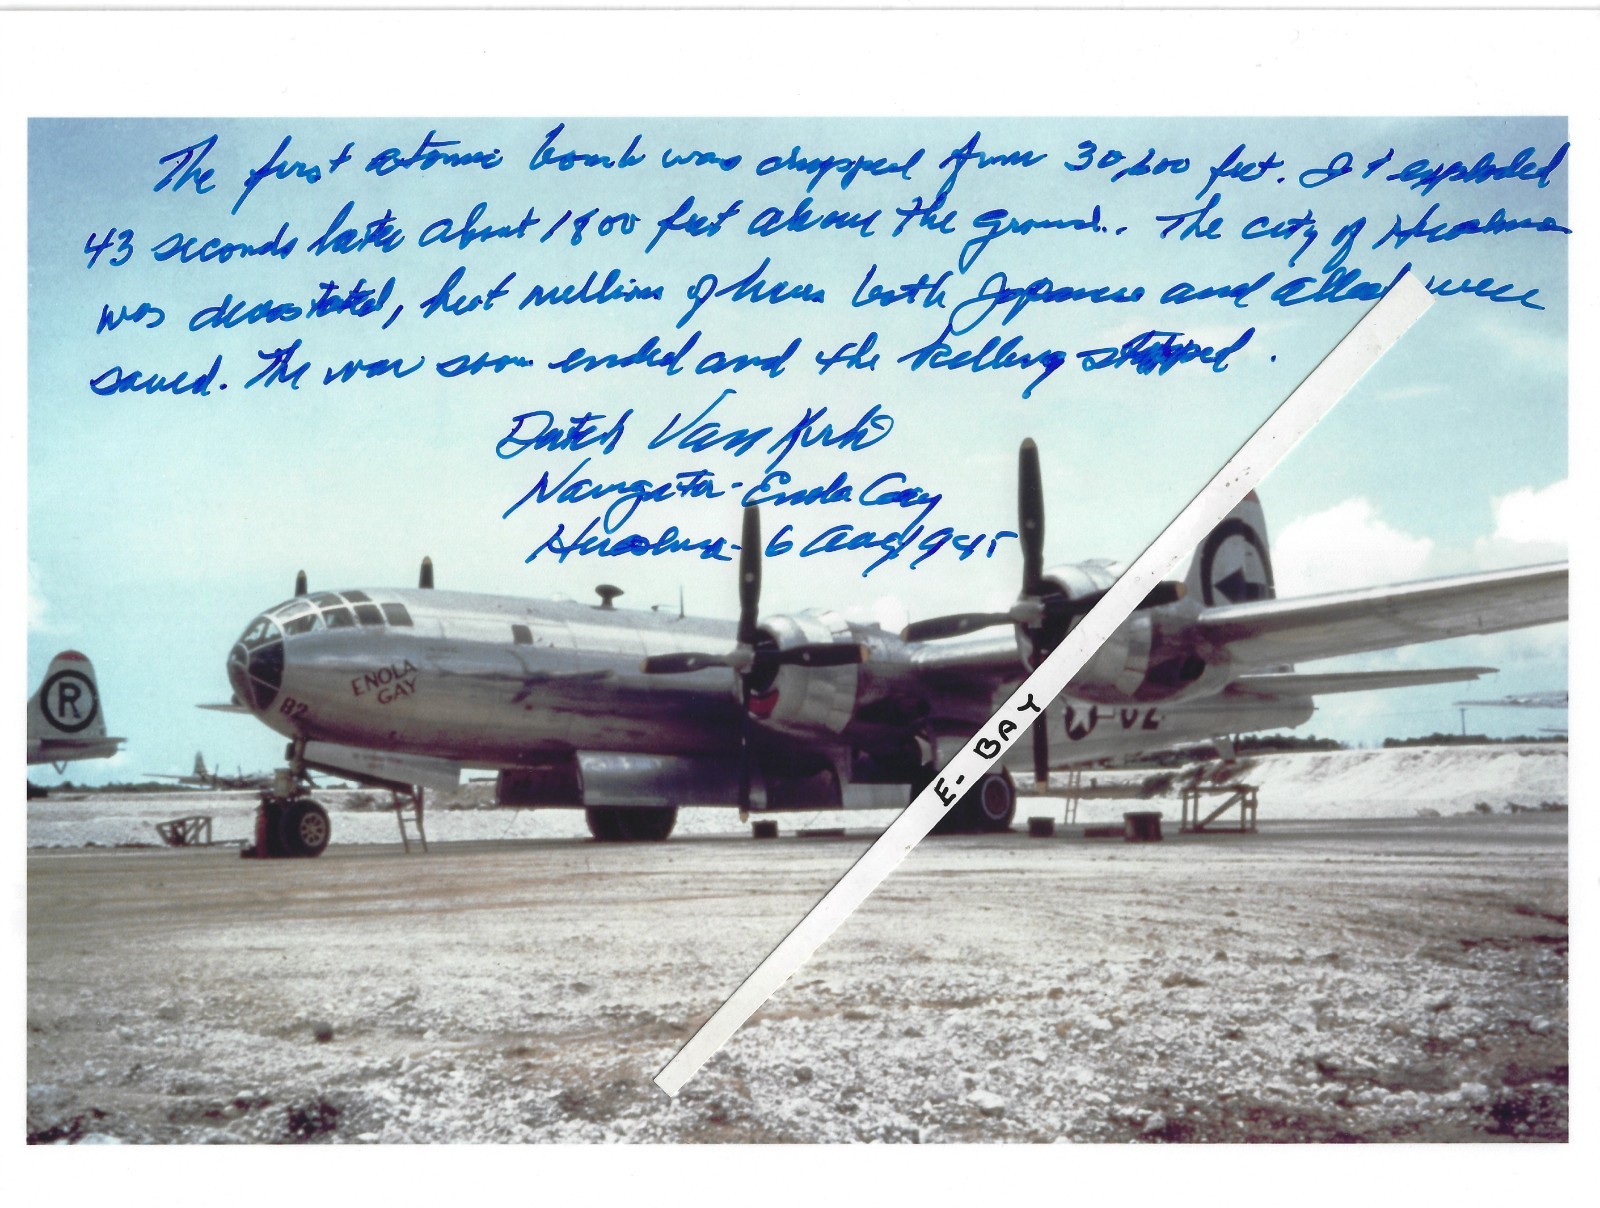 The first atomic bomb was dropped from 30,600 feet. It exploded
43 seconds later about 1800 feet above the ground. The city of Hiroshima
was devastated, but millions of lives both Japanese and allied were
saved. The war soon ended and the killing stopped.
Dutch Van Kirk
Navigator - Enola Gay
Hiroshima - 6 Aug 1945
ENOLA
GAY
82
R
82
E-BAY